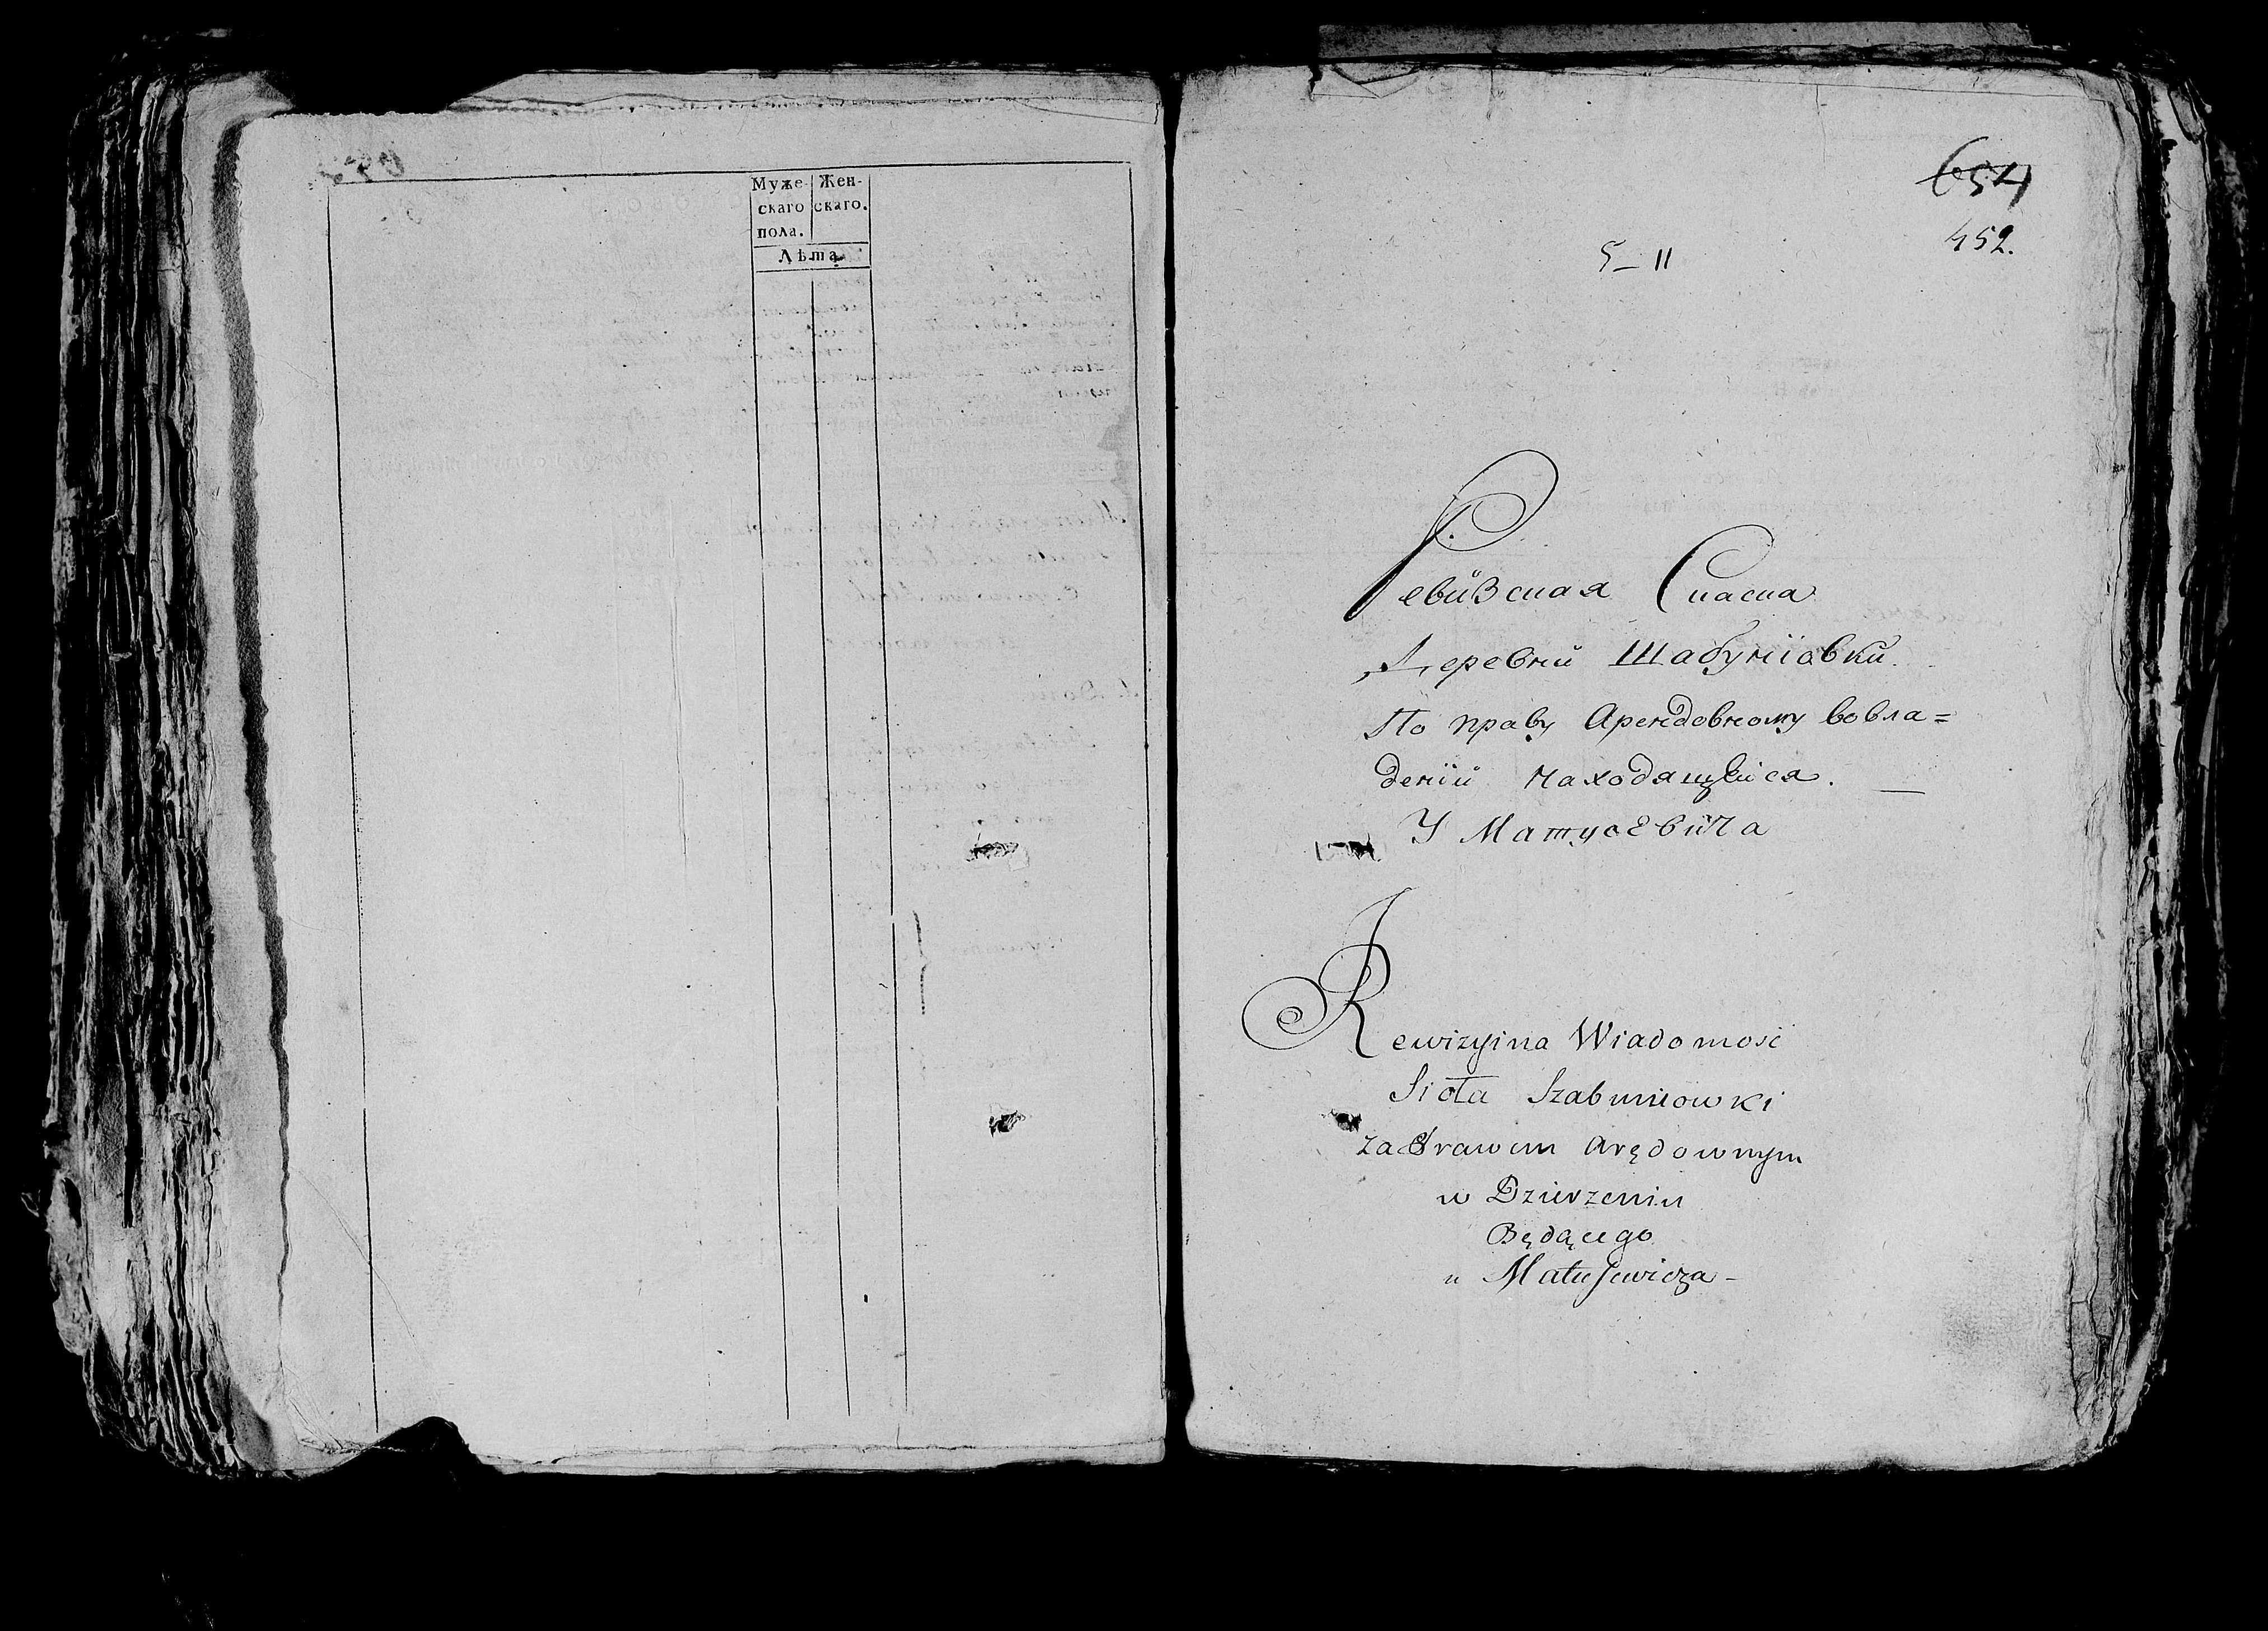 Муже- Жен-
скаго скаго.
пола.
Лѣта
654
452.
5-11
Ревизская Сказка
Деревни Шабунїовки.
По праву Арендовному вовла=
денїи находящейся.
У Матусевича
Rewizyina Wiadomość
Sioła Szabuniowki
za Prawem Arędownym
w Dzierzeniu
Będącego
u Matusewicza -